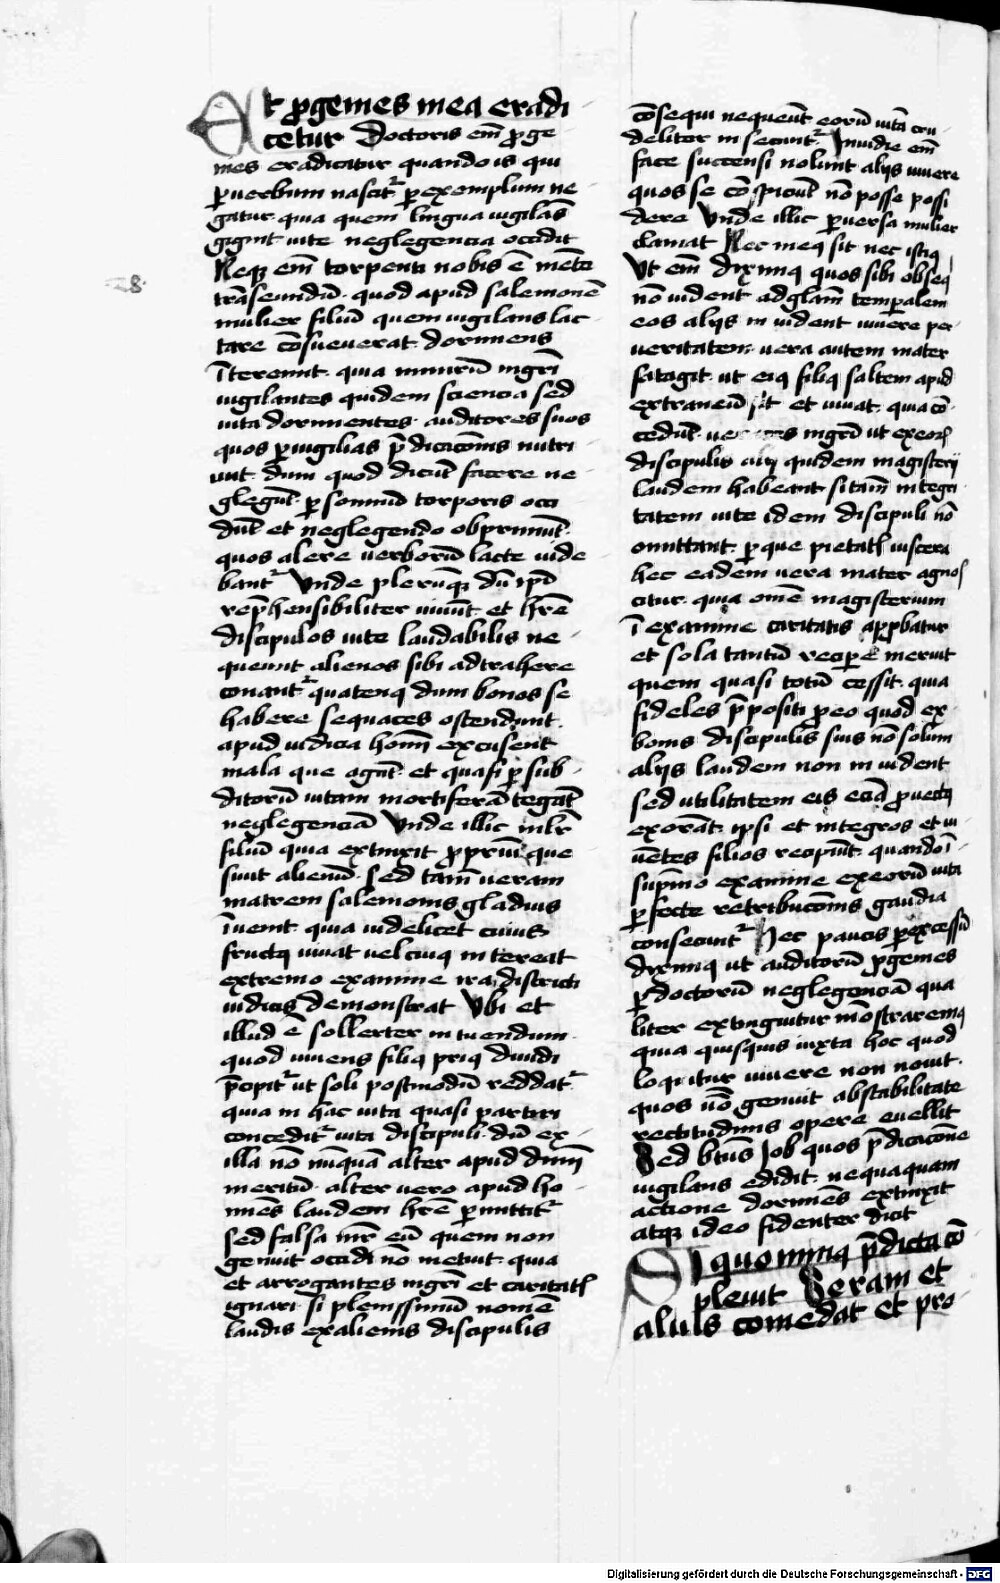 Et p̱genies mea eradi
cetur Doctoris em̄ p̱ge
nies eradicatur quando is qui
ꝑ verbum nascit᷑ ꝑ exemplum ne
gatur quia quem lingua uigilās
gignit uite neglegencia occidit
Neqꝫ em̄ torpenti nobis ē mēte
trāseundū · quod apud salemonē
mulier filiū quem uigilans lac
tare cōsueuerat dormiens
īteremit · quia nimirū mgrī
uigilantes quidem sciencia sed
uita dormientes · auditores suos
quos ꝑ uigilias p̄dicacōnis nutri
unt dum quod dicūt facere ne
glegūt · ꝑ somnū torporis occi
dūt et neglegendo obprimūt ·
quos alere uerborū lacte uide
bant᷑ Vnde plerūqꝫ dū ip̄i
rep̄hensibiliter uiuūt · et hr̄e
discipulos uite laudabilis ne
queunt alienos sibi adtrahere
conant᷑ quatenꝯ dum bonos se
habere sequaces ostendunt ·
apud iudicia homī excusent
mala que agūt · et quasi ꝑ sub
ditorū uitam mortiferā tegāt
neglegenciā Vnde illic mlr̄
filiū quia extinxit p̱priū que
siuit alienū · sed tam̄ ueram
matrem salemonis gladius
īuenit · quia uidelicet cuius
fructꝯ uiuat uel cuiꝯ intereat
extremo examine ira districti
iudicis demonstrat Vbi et
illud ē sollerter intuendum ·
quod uiuens filiꝯ priꝯ diuidi
p̄cipit᷑ ut soli postmodū reddat᷑
quia in hac uita quasi partiri
concedit᷑ uita discipuli · dū ex
illa nō nūquā alter apud dn̄m
meritū · alter uero apud ho
mīes laudem hr̄e ꝑmittit᷑
sed falsa mr̄ eū quem non
genuit occidi nō metuit · quia
et arrogantes mgrī et caritatꝭ
ignari · si plenissimū nomē
laudis ex alienis discipulis
cōsequi nequeūt eorū uitā cru
deliter insecunt᷑ · Inuidie em̄
face succensi nolunt alijs uiuere
quos se cōspiciūt nō posse possi
dere Vnde illic ꝑuersa mulier
clamat Nec meꝯ sit nec istiꝯ
Vt em̄ diximꝯ quos sibi obseqͥ
nō uident ad glā̄m temꝑalem
eos alijs inuident uiuere per
ueritatem · uera autem mater
satagit · ut eiꝯ filiꝯ saltem apud
extraneū sit et uiuat · quia cō
cedūt mgrī ut ex eorꝝ
discipulis alij quidem magisterij
laudem habeant si tam̄ integri
tatem uite idem discipuli nō
omittant · ꝑ que pietatꝭ uiscera
hec eadem uera mater agnos
citur · quia om̄e magisterium
ī examine caritatis app̱batur
et sola tantū reciꝑe meruit
quem quasi totū cessit · quia
fideles p̄positi p̱ eo quod ex
bonis discipulis suis nō solum
alijs laudem non inuident
sed utilitatem eis eciā p̱uectꝯ
exorāt · ipsi et integros et ui
uentes filios recipiūt · quando ī
sup̄mo examine ex eorū uita
ꝑfecte retribucōnis gaudia
consecunt᷑ Hec paucis ꝑ excessū
diximꝯ ut auditorū p̱genies
ꝑ doctorū neglegenciā qua
liter extinguitur mōstraremꝯ
quia quisquis iuxta hoc quod
loquitur uiuere non nouit ·
quos uō genuit ab stabilitate
rectitudinis opere euellit
Sed btūs Job quos p̄dicacōne
uigilans edidit · nequaquam
actione dormiēs extinxit
atqꝫ ideo fidenter dicit
Si quominꝯ p̄dicta cō
pleuit Seram et
alius comedat et pro
28·
Digitalisierung gefördert durch die Deutsche Forschungsgemeinschaft - DFG